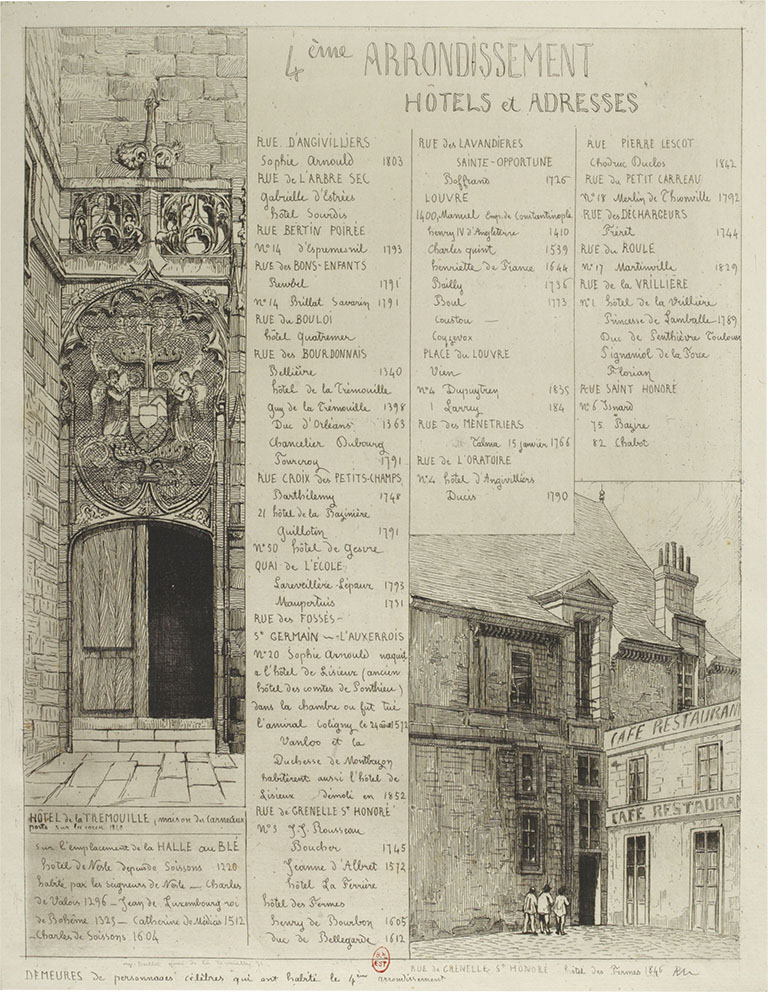 4ème ARRONDISSEMENT
HÔTELS et ADRESSES
RUE D'ANGIVILLIERS
Sophie Arnould 1803
RUE de L'ARBRE SEC
Gabrielle d'Estrées
hôtel Sourdis
RUE BERTIN POIRÉE
N° 14 d'Espremesnil 1793
RUE des BONS-ENFANTS
Rewbel 1791
N° 14 Brillat Savarin 1791
RUE du BOULOI
hôtel Quatremer
RUE des BOURDONNAIS
Bellièvre 1340
hôtel de la Trémouille
Guy de la Trémouille 1398
Duc d'Orléans 1363
Chancelier Dubourg
Fourcroy 1791
RUE CROIX des PETITS-CHAMPS
Barthélemy 1748
21 hôtel de la Bazinière
Guillotin 1791
N° 30 hôtel de Gesvre
QUAI de L'ÉCOLE
Lareveillère-Lépaux 1793
Maupertuis 1731
RUE des FOSSÉS-
St GERMAIN - L'AUXERROIS
N° 20 Sophie Arnould naquit
a l'hôtel de Lisieux (ancien
hôtel des comtes de Ponthieu)
dans la chambre ou fut tué
l'amiral Coligny le 24 août 1572
Vanloo et la
Duchesse de Montbazon
habitèrent aussi l'hôtel de
Lisieux démoli en 1852
RUE de GRENELLE St HONORÉ
N° 3 J.J. Rousseau
Boucher 1745
Jeanne d'Albret 1572
hôtel La Ferrière
hôtel des Fermes
henry de Bourbon 1605
duc de Bellegarde 1612
RUE des LAVANDIÈRES
SAINTE-OPPORTUNE
Boffrand 1726
LOUVRE
1400, Manuel Emp. de Constantinople
henry IV d'Angleterre 1410
Charles quint 1539
henriette de France 1644
Bailly 1736
Boul 1773
Coustou —
Coyzevox
PLACE du LOUVRE
Vien
N° 4 Dupuytren 1835
1 Larrey 184
RUE des MÉNÉTRIERS
Talma 15 janvier 1766
RUE de L'ORATOIRE
N° 4 hôtel d'Angivilliers
Ducis 1790
RUE PIERRE LESCOT
Chodruc Duclos 1842
RUE du PETIT CARREAU
N° 18 Merlin de Thionville 1792
RUE des DÉCHARGEURS
Fréret 1744
RUE du ROULE
N° 17 Martinville 1829
RUE de la VRILLIÈRE
N° 1 hôtel de la Vrillière
Princesse de Lamballe 1789
Duc de Penthièvre Toulouse
Piganiol de la Force
Florian
RUE SAINT HONORÉ
N° 6 Isnard
75 Bazire
82 Chabot
CAFÉ RESTAURAN
CAFÉ RESTAURAN
HÔTEL de la TREMOUILLE, maison du Carnedieu
porte sur la cour
sur l'emplacement de la HALLE au BLÉ
hotel de Nesle depuis de Soissons 1220
habité par les seigneurs de Nesle — Charles
de Valois 1296 — Jean de Luxembourg roi
de Bohême 1325 — Catherine de Médicis 1512
— Charles de Soissons 1604
DEMEURES de personnages célèbres qui ont habité le 4ème arrondissement
RUE de GRENELLE St HONORÉ hôtel des Fermes 1846
EST